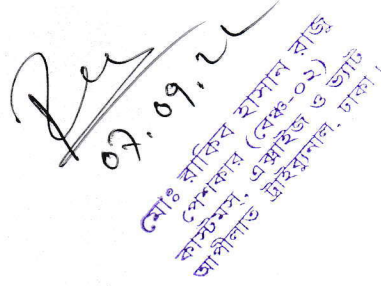 07.09.2
মোঃ রাকিব হাসান রাজু
পেশকার (বেঞ্চ-০২)
কাস্টমস, এক্সাইজ ও ভ্যাট
আপীলাত ট্রাইব্যুনাল, ঢাকা।